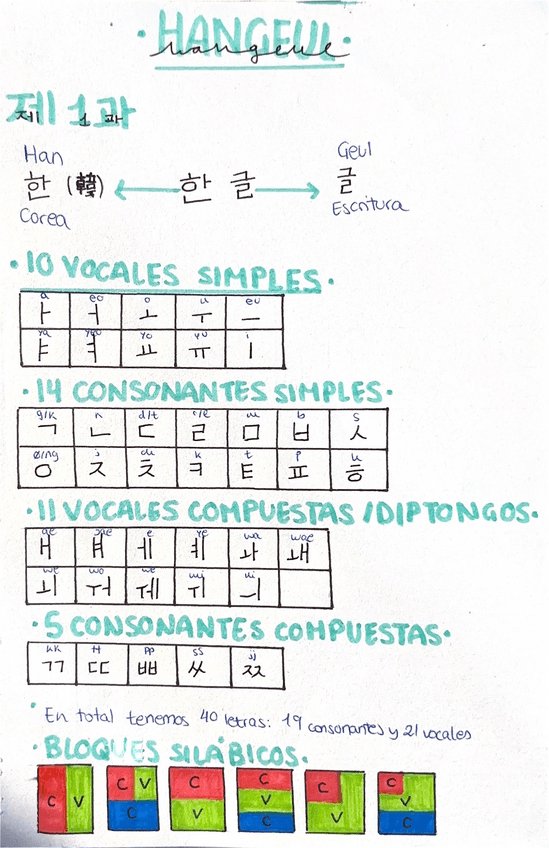 · HANGEUL ·
hangeul
제 1 과
제 1 과
Han
Geul
한 (韓) 한 글 글
Corea
Escritura
· 10 VOCALES SIMPLES ·
a eo o u eu
ㅏ ㅓ ㅗ ㅜ ㅡ
ya yeo yo yu i
ㅑ ㅕ ㅛ ㅠ ㅣ
· 14 CONSONANTES SIMPLES ·
g/k n d/t r/l m b s
ㄱ ㄴ ㄷ ㄹ ㅁ ㅂ ㅅ
ø/ng j ch k t p h
ㅇ ㅈ ㅊ ㅋ ㅌ ㅍ ㅎ
· 11 VOCALES COMPUESTAS / DIPTONGOS ·
ae yae e ye wa wae
ㅐ ㅒ ㅔ ㅖ ㅘ ㅙ
we wo we wi ui
ㅚ ㅝ ㅞ ㅟ ㅢ
· 5 CONSONANTES COMPUESTAS ·
kk tt pp ss jj
ㄲ ㄸ ㅃ ㅆ ㅉ
· En total tenemos 40 letras: 19 consonantes y 21 vocales
· BLOQUES SILÁBICOS ·
C V
C V C
C V
C V C
C V
C V C